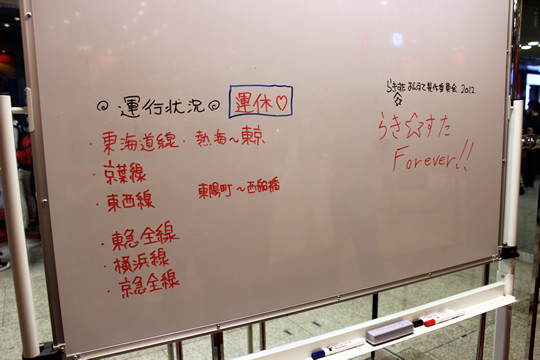 ◎ 運行状況 ◎ 運休♡
・東海道線・熱海〜東京
・京葉線
・東西線 東陽町〜西船橋
・東急全線
・横浜線
・京急全線
製作委員会 2012
らき☆すた
Forever!!